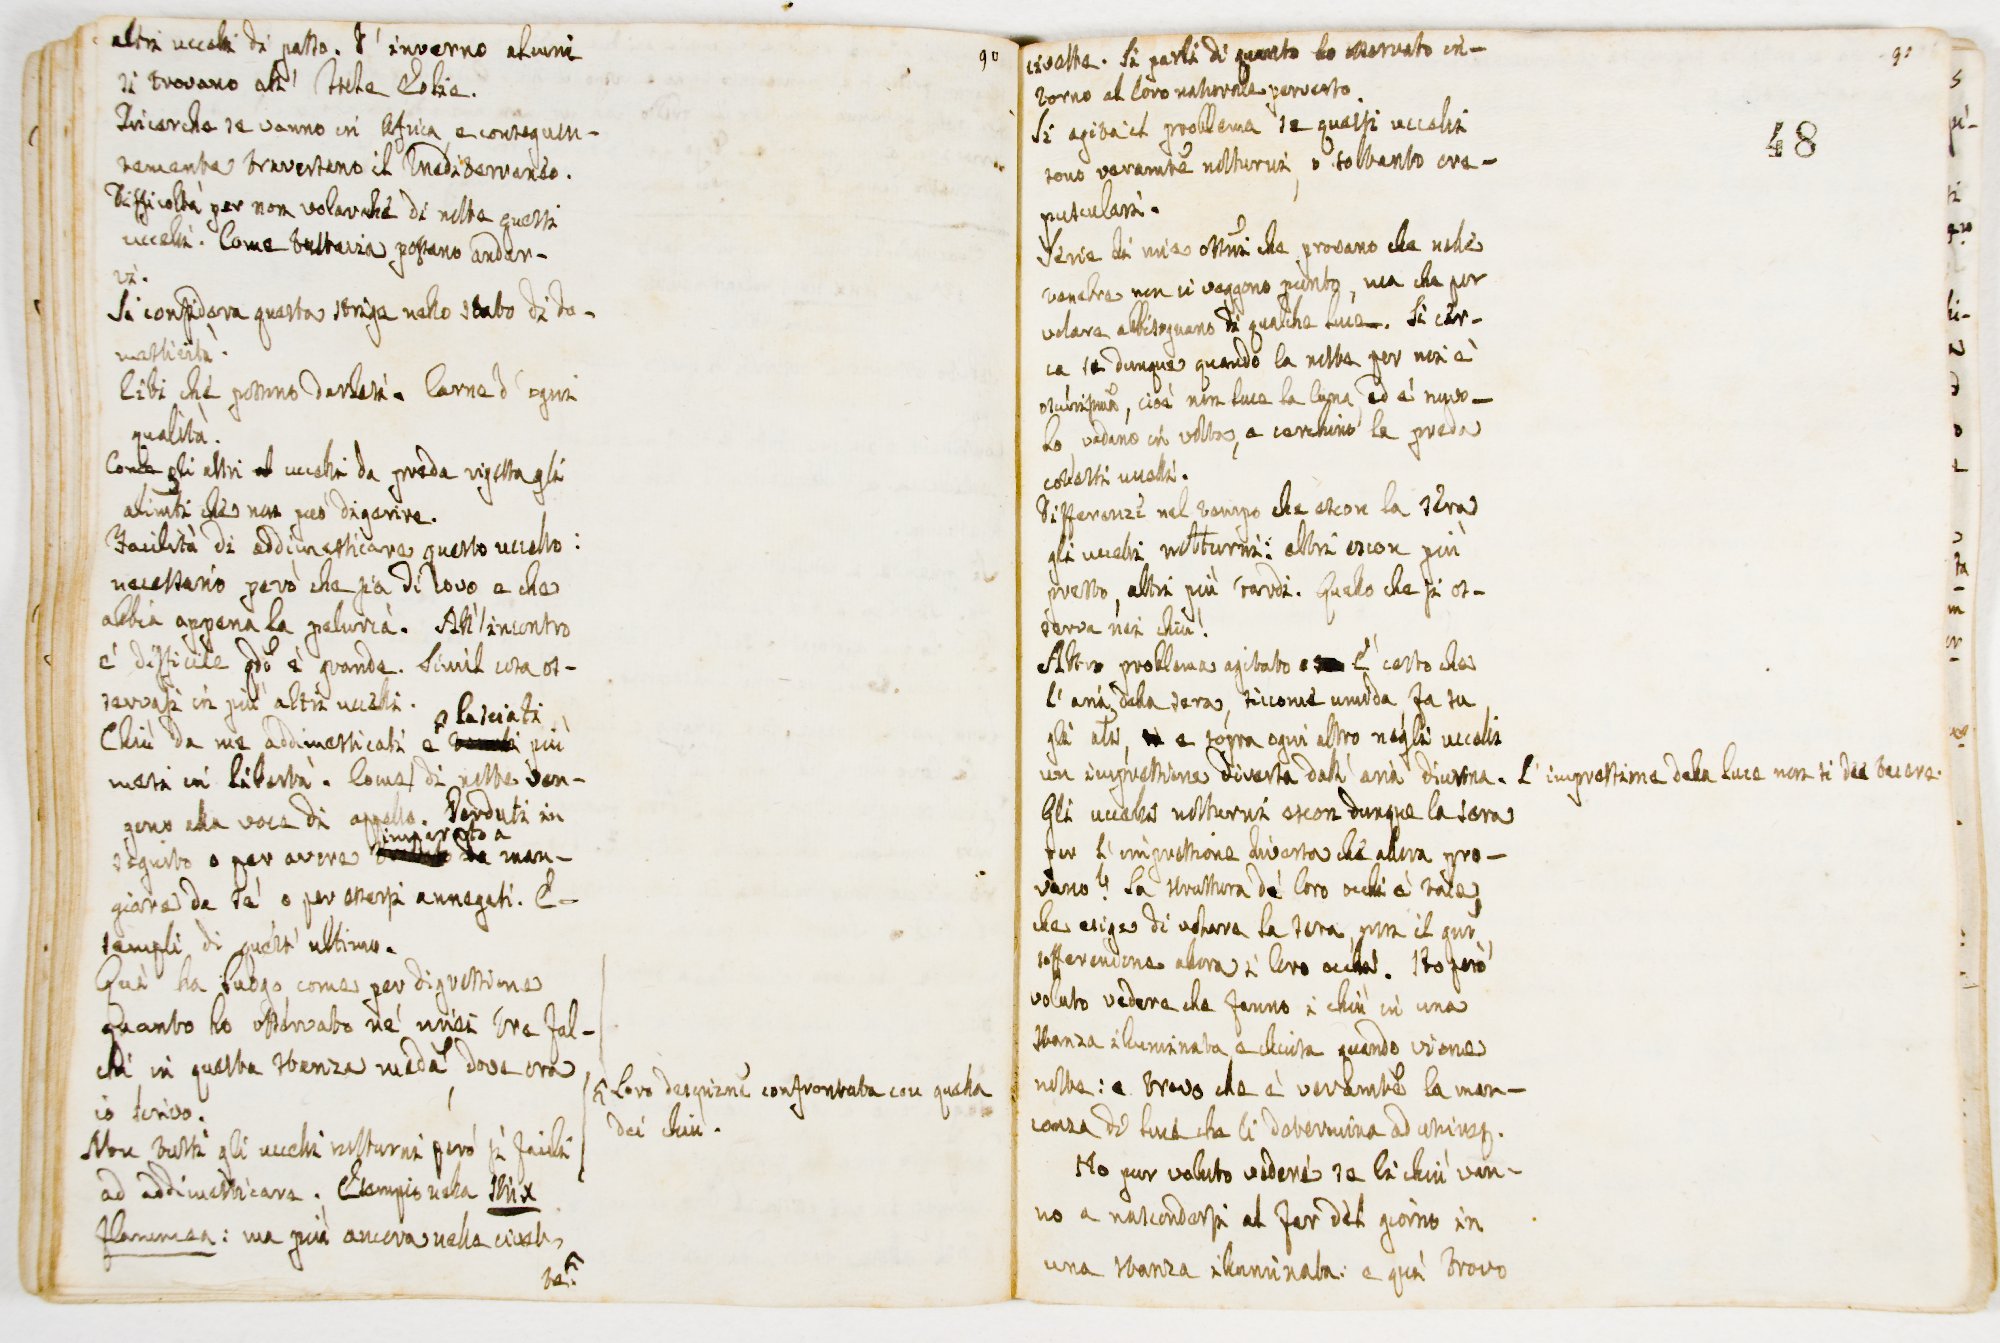 altri uccelli di passo. D' inverno alcuni
si trovano all' Isole Eolie.
Ricerche se vanno in Africa, e conseguen-
temente traversano il Mediterraneo.
Difficoltà per non volar che di notte questi
uccelli. Come tuttavia possano andar-
vi.
Si considera questa strige nello stato di do-
mesticità.
Cibi che possono darlesi. Carne d' ogni
qualità.
Come gli altri uccelli da preda rigetta gli
alimti che non può digerire.
Facilità di addimesticare questo uccello:
necessario però che sia di covo e che
abbia appena la peluria. All' incontro
è difficile qdo è grande. Simil cosa os-
servasi in più altri uccelli.
Chiù da me addimesticati e lasciati più
mesi in libertà. Come di notte ven-
gono alla voce di appello. Perduti in
seguito o per avere imparato a man-
giare da se' o per essersi annegati. E-
sempli di quest' ultimo.
Quì ha luogo come per digressione
quanto ho osservato ne' miei tre fal-
chi in questa stanza meda dove ora
io scrivo.
Loro descrizne confrontata con quella
dei chiù.
Non tutti gli uccelli notturni però sì facili
ad addimesticare. Esempio nella Strix
flammea: ma più ancora nella civet-
ta.
90
civetta. Si parli di quanto ho osservato in-
torno al loro naturale perverso.
91
48
Si agita il problema se questi uccelli
sono veramte notturni, o soltanto cre-
pusculari.
Serie di mie ossni che provano che nelle
tenebre non ci veggono punto, ma che per
volare abbisognano di qualche luce. Si cer-
ca se dunque quando la notte per noi è
oscurissima, cioè non luce la luna ed è nuvo-
lo, vadano in volta, e cerchino la preda
cotesti uccelli.
Differenze nel tempo che escon la sera
gli uccelli notturni: altri escon più
presto, altri più tardi. Quello che si os-
serva nei chiù.
Altro problema agitato È certo che
l' aria della sera, siccome umida fa su
gli alti, e sopra ogni altro negli uccelli
un impressione diversa dall' aria diurna. L' impressione della luce non si dee tacere.
Gli uccelli notturni escon dunque la sera
per l' impressione diversa che allora pro-
vano? La struttura de' loro occhi è tale,
che esige di volare la sera, non il gno,
soffrendone allora i loro occhi. Ho però
voluto vedere che fanno i chiù in una
stanza illuminata e chiusa quando viene
notte: e trovo che è veramte la man-
canza di luce che li determina ad uscire.
Ho pur voluto vedere se li chiù van-
no a nascondersi al far del giorno in
una stanza illuminata: e quì trovo